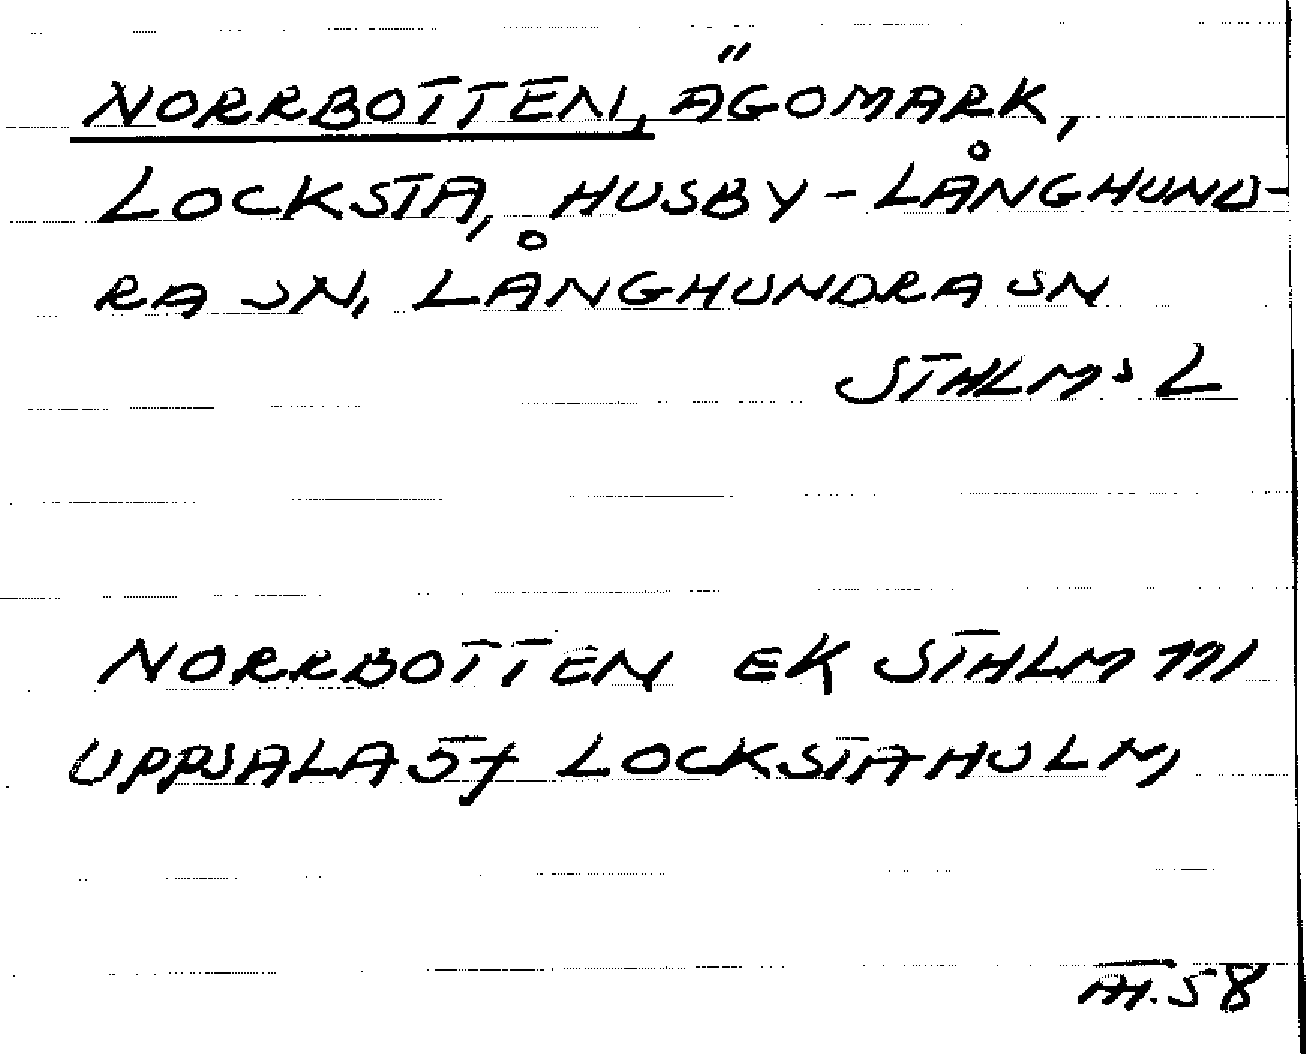 NORRBOTTEN, ÄGOMARK,
LOCKSTA, HUSBY-LÅNGHUND-
RA SN, LÅNGHUNDRA SN
STHLMS L
NORRBOTTEN EK STHLM 111
UPPSALA 5f LOCKSTAHOLM,